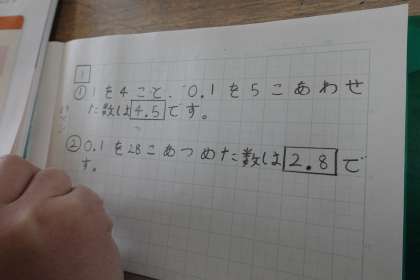 1
①1を4こと、0.1を5こあわせ
た数は4.5です。
②0.1を28こあつめた数は2.8で
す。